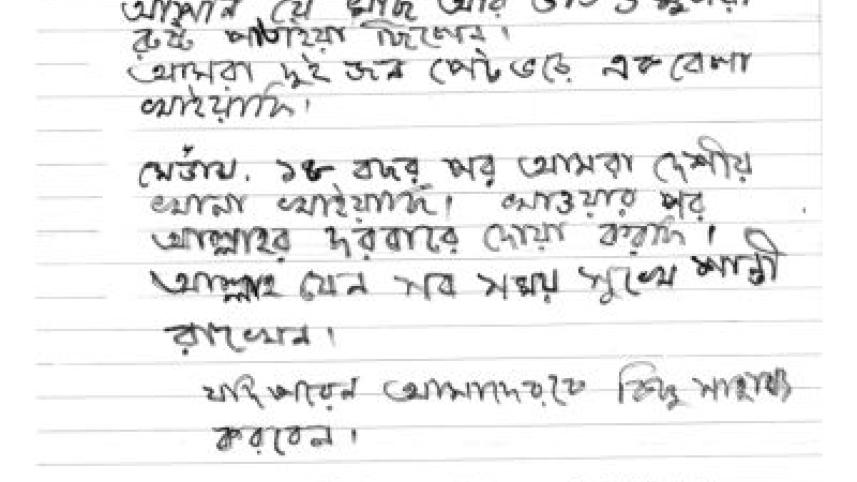 আপনি যে মাছ আর ভাত ও
রুষ্ট পাঠাইয়া ছিলেন।
আমরা দুই জন পেট ভরে এক বেলা
খাইয়াছি।
মেডাম, ১৮ বছর পর আমরা দেশীয়
খানা খাইয়াছি। খাওয়ার পর
আল্লাহর দরবারে দোয়া করছি।
আল্লাহ যেন সব সময় সুখে শান্তী
রাখেন।
যদি পারেন আমাদেরকে কিছু সাহায্য
করবেন।